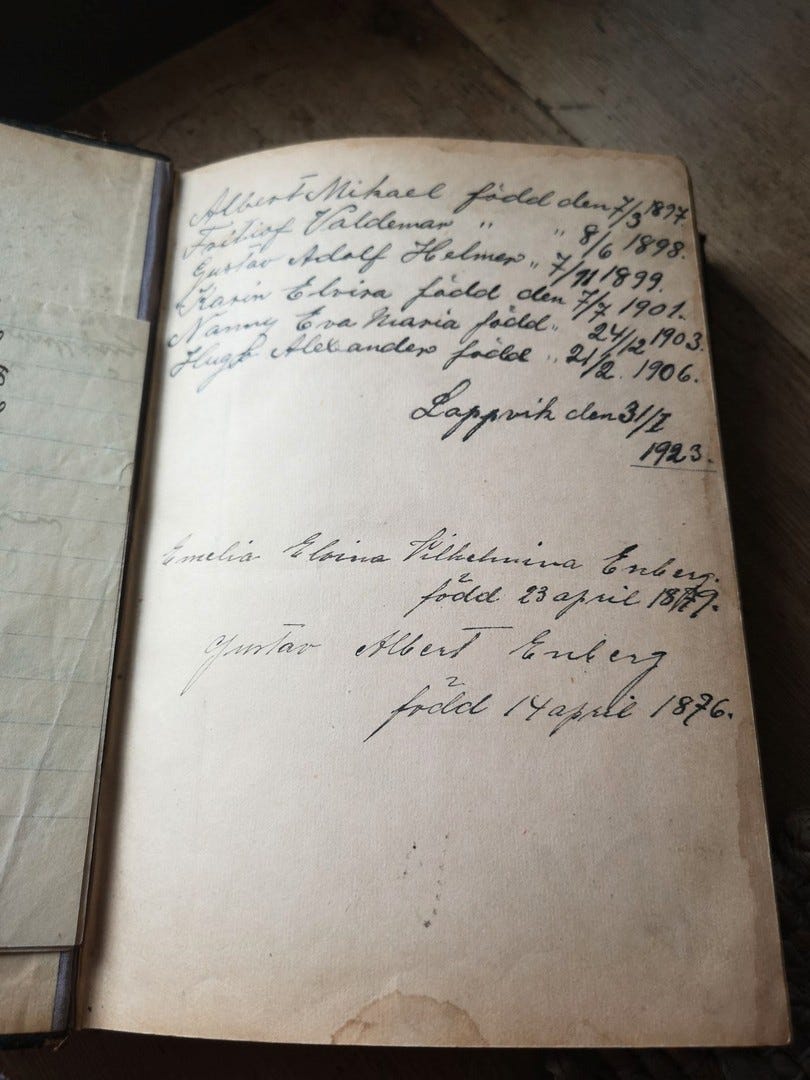 Albert Mikael född den 7/3 1897.
Fritiof Valdemar " " 8/6 1898.
Gustav Adolf Helmer " 7/11 1899.
Karin Elvira född den 7/7 1901.
Nanny Eva Maria född " 24/12 1903.
Alexander född " 21/2. 1906.
Lappvik den 31/I
1923.
Emelia Elvina Vilhelmina Enberg.
född 23 april 1879.
Gustav Albert Enberg
född 14 april 1876.